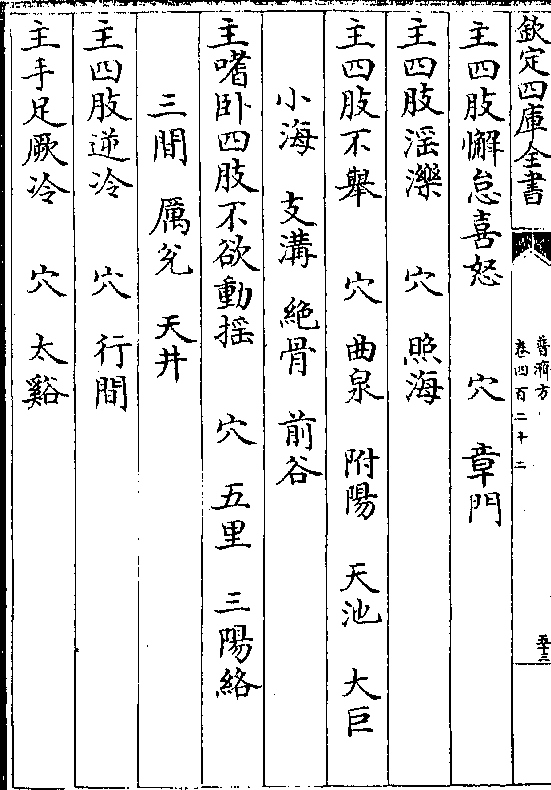 欽定四庫全書
普濟方
卷四百二十二
五十三
主四肢懈怠喜怒　穴　章門
主四肢滛濼　穴　照海
主四肢不舉　穴　曲泉　附陽　天池　大巨
小海　支溝　絶骨　前谷
主嗜卧四肢不欲動揺　穴　五里　三陽絡
三間　厲兊　天井
主四肢逆冷　穴　行間
主手足厥冷　穴　太谿